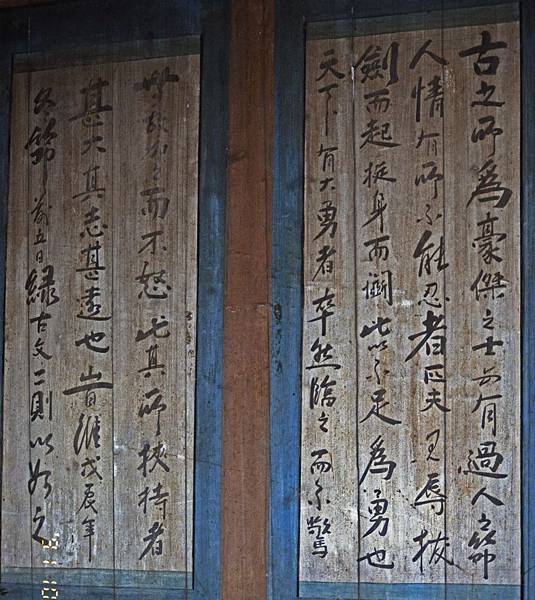 古之所為豪傑之士必有過人之節
人情有所不能忍者匹夫見辱拔
劍而起挺身而鬪此不足為勇也
天下有大勇者卒然臨之而不驚
無故加之而不怒此其所挾持者
甚大其志甚遠也 時維戊辰年
冬節前五日錄古文二則以為之